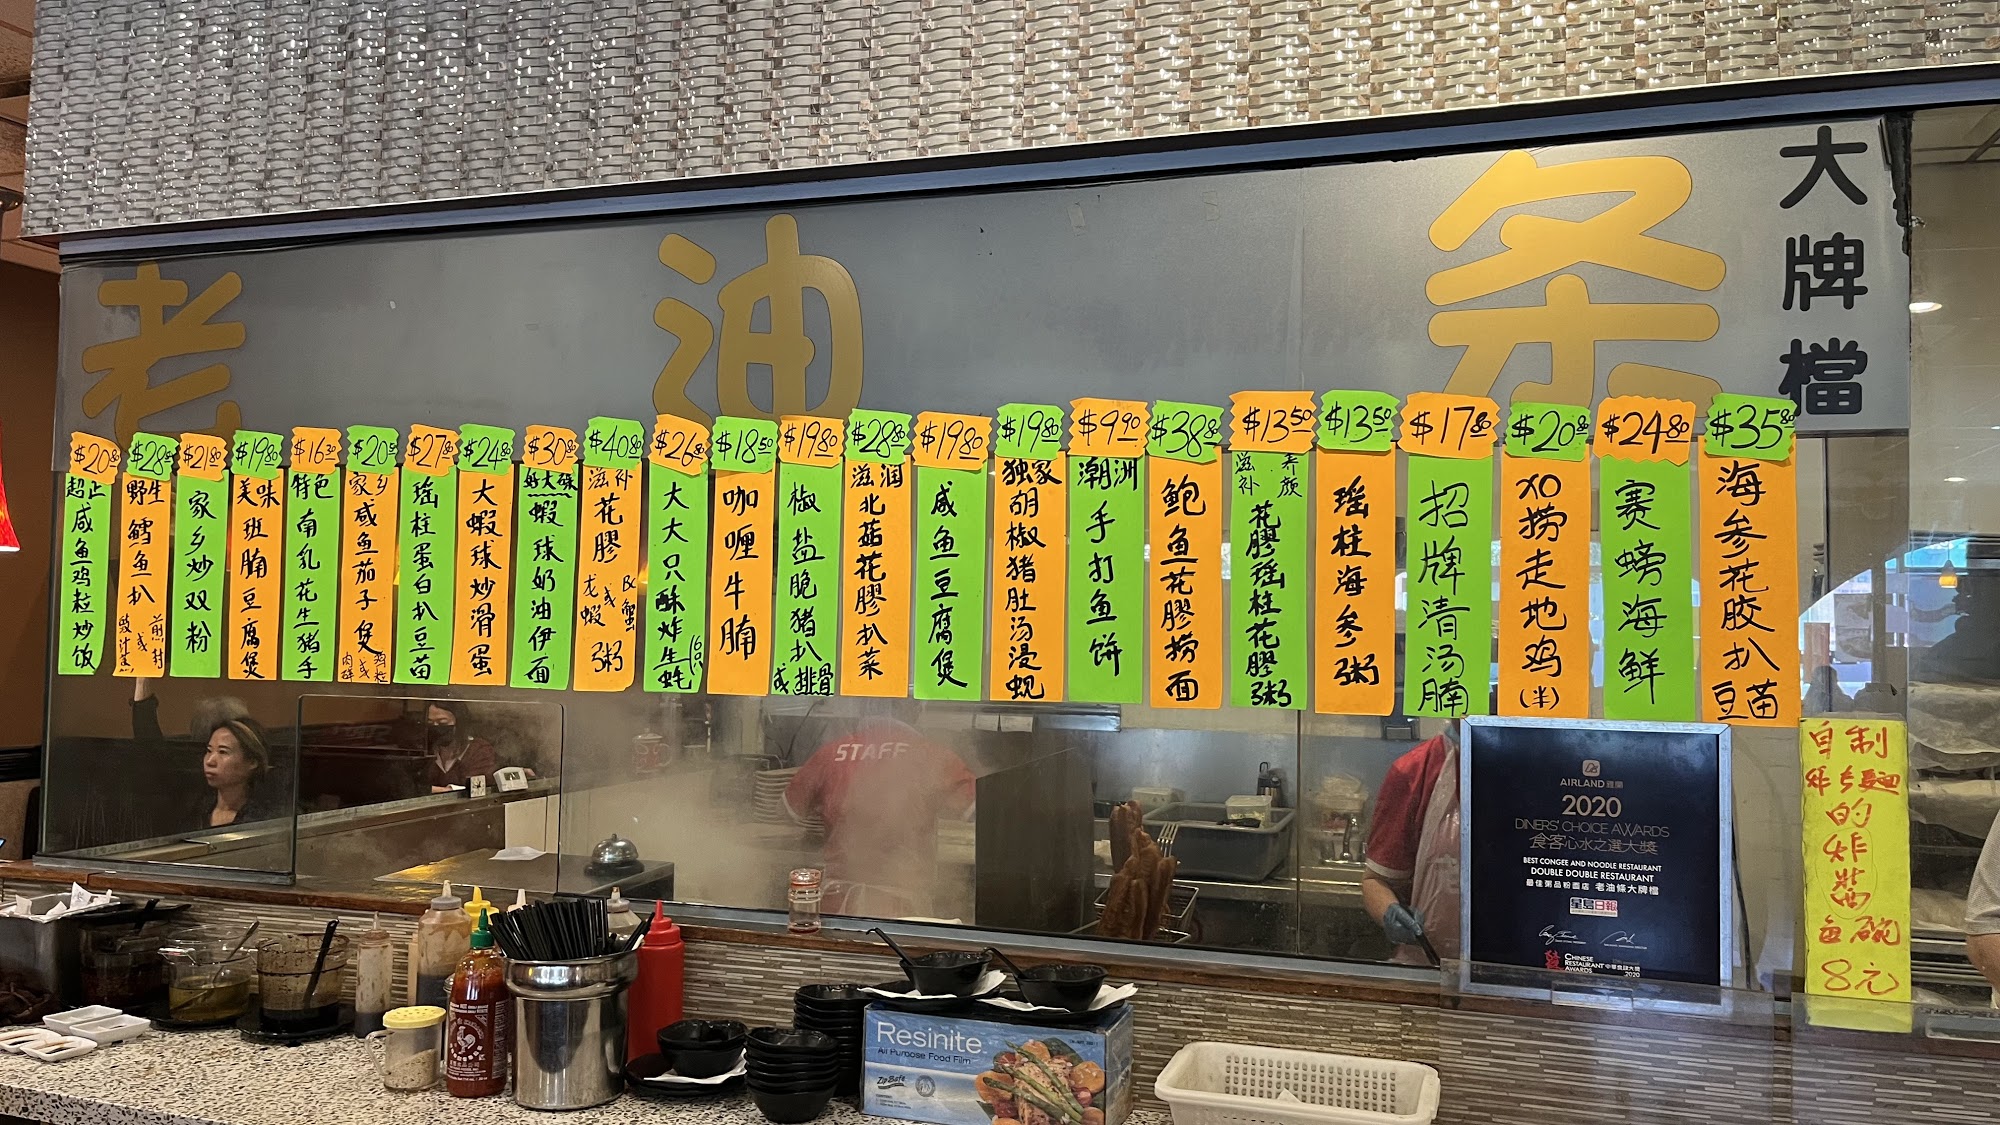 老油条
大牌檔
$20.80
超正咸鱼鸡粒炒饭
$28.80
野生鱈鱼扒
豉汁蒸或煎封
$21.80
家乡炒双粉
$19.80
美味班腩豆腐煲
$16.30
特色南乳花生猪手
家乡咸鱼茄子煲
肉碎或鸡粒
$27.80
瑶柱蛋白扒豆苗
$24.80
大蝦球炒滑蛋
$30.80
蝦球奶油伊面
$40.80
滋补花膠
龙蝦或BC蟹
粥
$26.80
大大只酥炸生蚝
$18.50
咖喱牛腩
$19.80
椒盐脆猪扒或排骨
$28.80
滋润北菇花膠扒菜
$19.80
咸鱼豆腐煲
$19.80
独家胡椒猪肚汤浸蚬
$9.90
潮洲手打鱼饼
$38.80
鲍鱼花膠捞面
$13.50
滋补养颜
花膠瑶柱花膠粥
$13.50
瑶柱海参粥
$17.80
招牌清汤腩
$20.80
XO捞走地鸡(半)
$24.80
赛螃海鲜
$35.80
海参花胶扒豆苗
自制
的
炸
酱
碗
8元
STAFF
AIRLAND 雅蘭
2020
DINERS' CHOICE AWARDS
食客心水之選大獎
BEST CONGEE AND NOODLE RESTAURANT
DOUBLE DOUBLE RESTAURANT
最佳粥品粉麵店 老油條大牌檔
星島日報
CHINESE
RESTAURANT 中華食肆大獎
AWARDS 2020
Resinite
All Purpose Food Film
Zip Safe